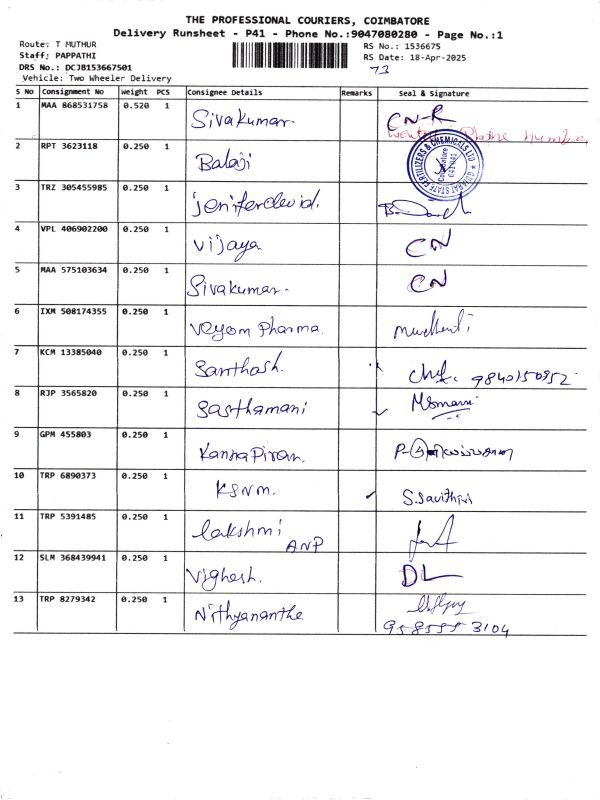 THE PROFESSIONAL COURIERS, COIMBATORE
Delivery Runsheet - P41 - Phone No.:9047080280 - Page No.:1
Route: T MUTHUR
RS No.: 1536675
Staff: PAPPATHI
RS Date: 18-Apr-2025
DRS No.: DCJB153667501
73
Vehicle: Two Wheeler Delivery
S No Consignment No Weight PCS Consignee Details Remarks Seal & Signature
1 MAA 868531758 0.520 1 Sivakumar. CN-R
number
2 RPT 3623118 0.250 1 Balaji
GUJARAT STATE FERTILIZERS & CHEMICALS LTD
Coimbatore
641 041
3 TRZ 305455985 0.250 1 Jeniferdevid.
4 VPL 406902200 0.250 1 Vijaya CN
5 MAA 575103634 0.250 1 Sivakumar. CN
6 IXM 508174355 0.250 1 Veyom Pharma.
7 KCM 13385040 0.250 1 Santhosh. 9840150952
8 RJP 3565820 0.250 1 Sasthamani
9 GPM 455803 0.250 1 KannaPiran.
10 TRP 6890373 0.250 1 KSNM. S.Savithri
11 TRP 5391485 0.250 1 lakshmi
ANP
12 SLM 368439941 0.250 1 Vighesh. DL
13 TRP 8279342 0.250 1 Nithyananthe
958555 3104